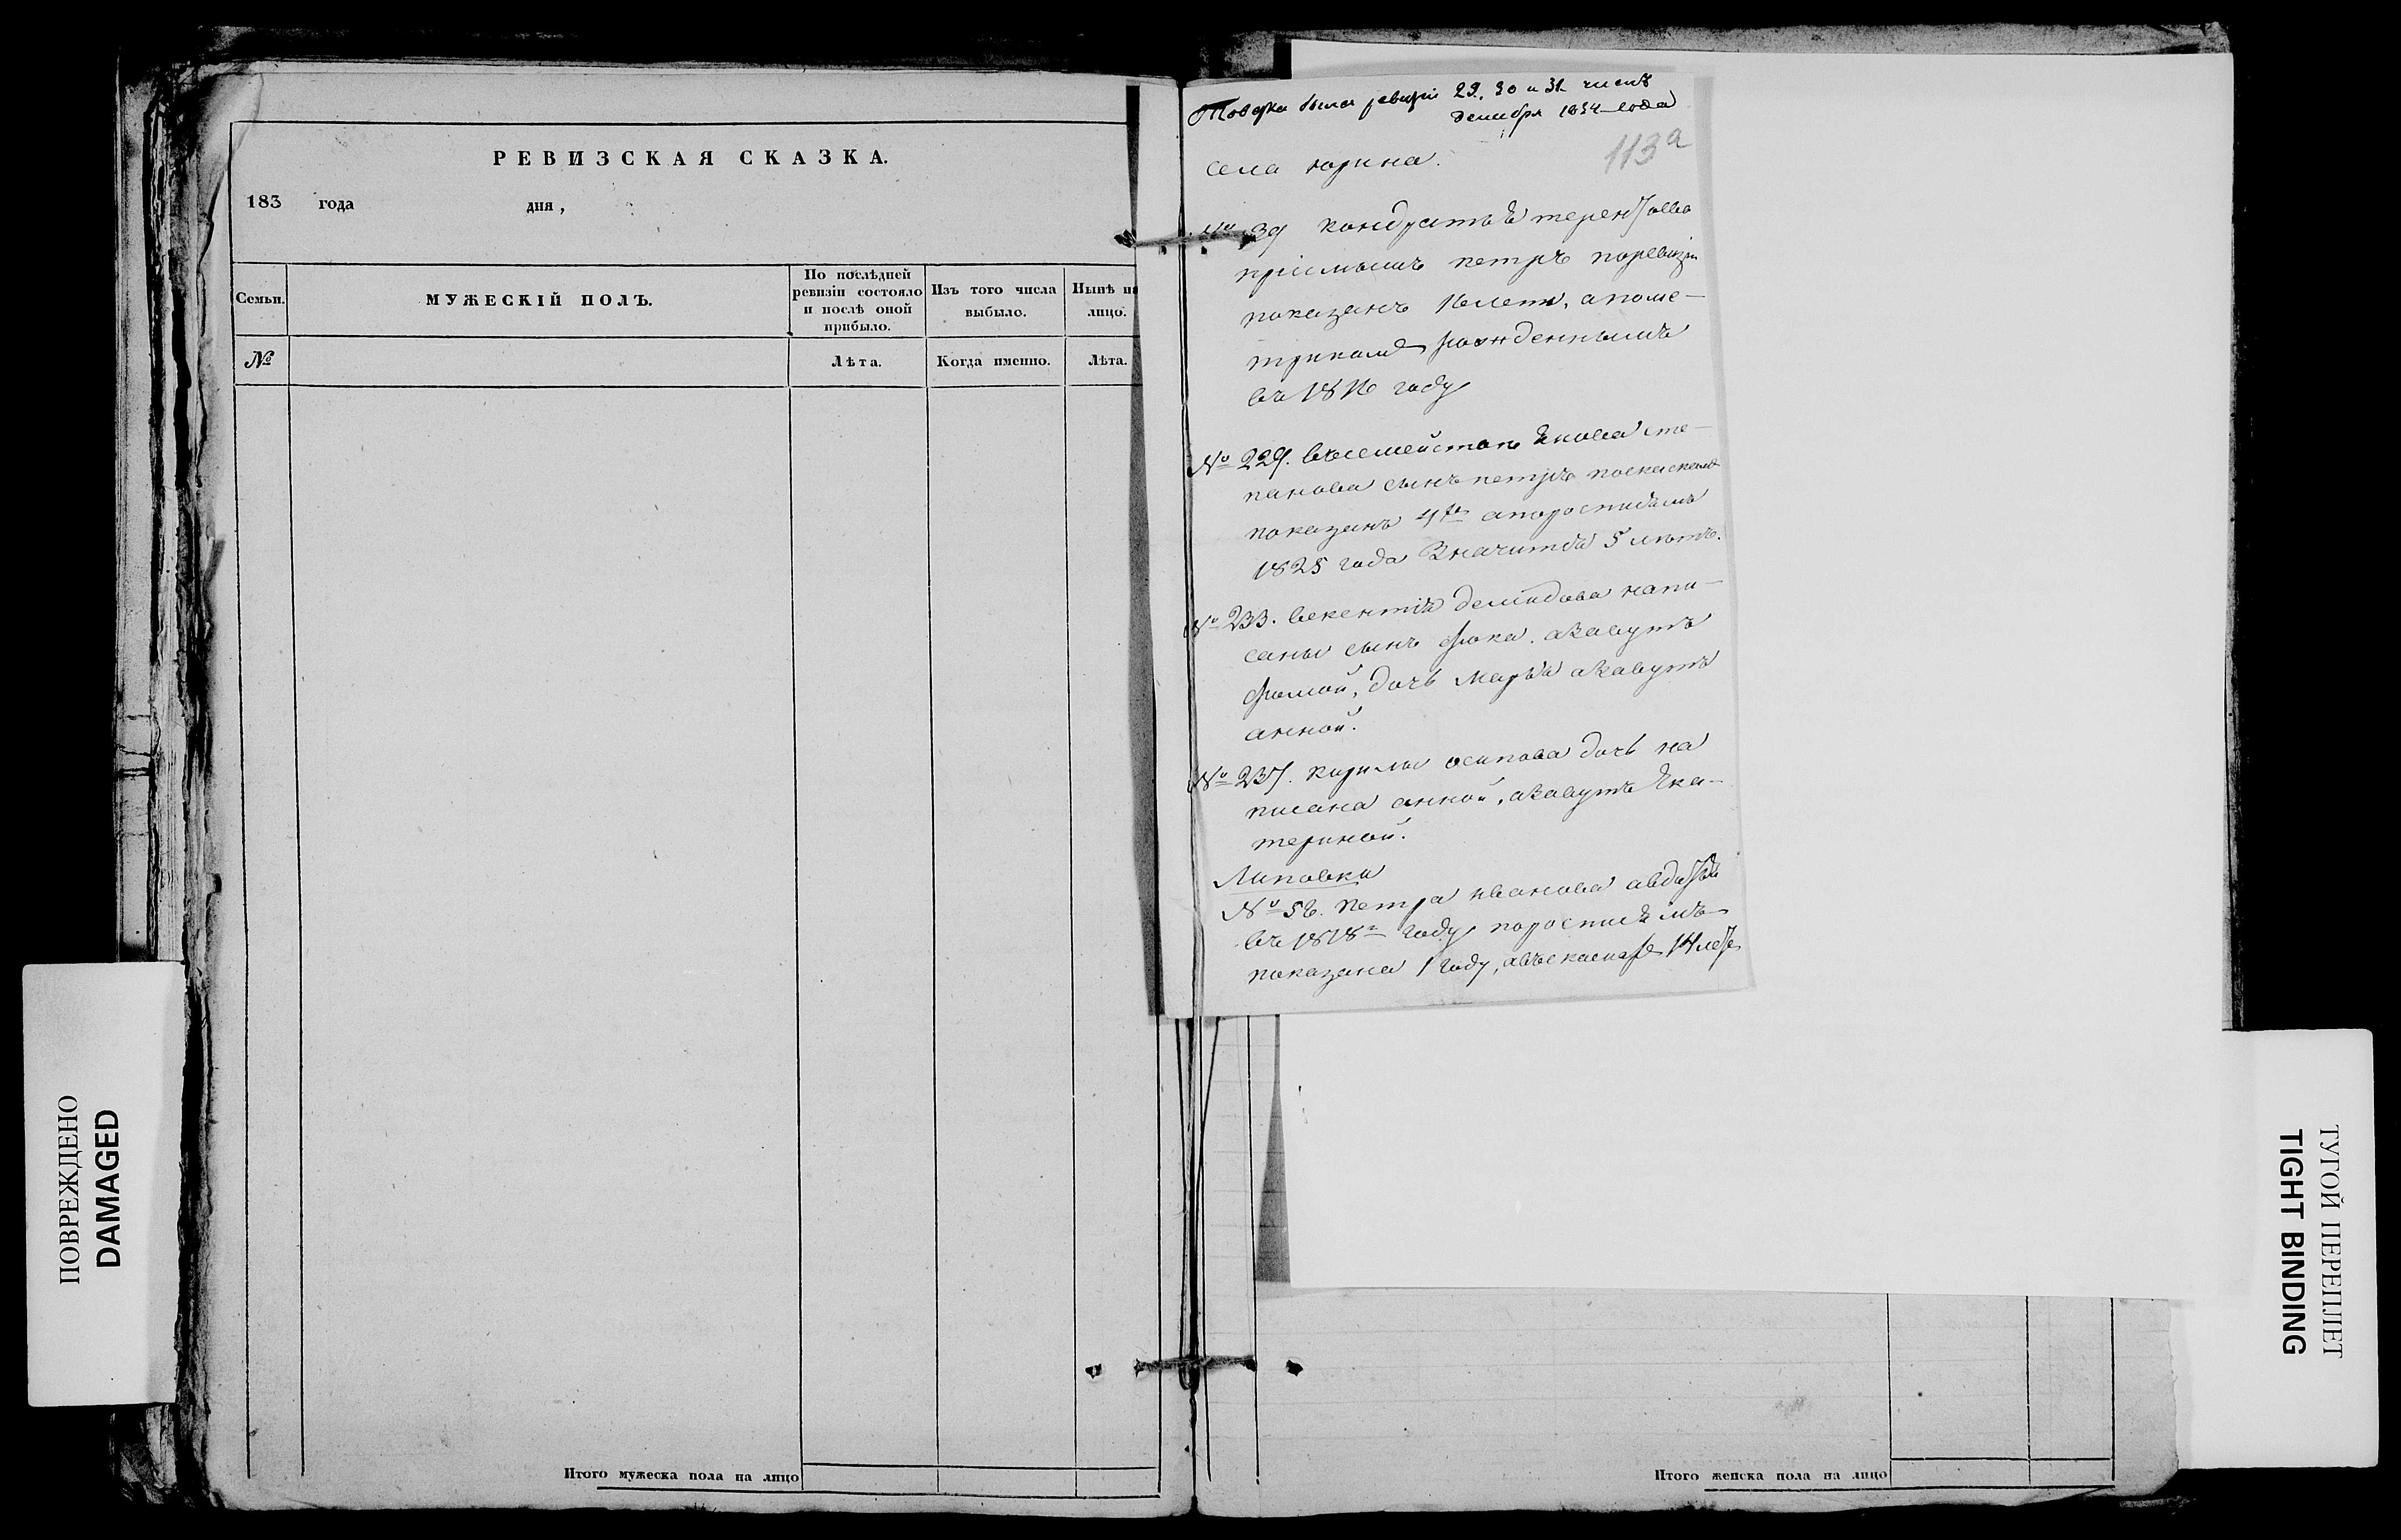 РЕВИЗСКАЯ СКАЗКА.
183 года дня,
Семьи.
МУЖЕСКІЙ ПОЛЪ.
По послѣдней
ревизіи состояло
и послѣ оной
прибыло.
Изъ того числа
выбыло.
Нынѣ на
лицо.
№
Лѣта.
Когда именно.
Лѣта.
Итого мужеска пола на лицо
была ревизіи 29, 30 и 31 числъ
декабря 1834 года
113а
села юрина.
№ 39 кондратья терентьева
пріемышъ петръ поревизіи
показанъ 16 летъ, апоме-
трикамъ рожденнымъ
въ 1816 году
№ 229. въсемействѣ якова сте-
панова сынъ петръ поскаскамъ
показанъ 4 апоросписямъ
1825 года значится 5 лѣтъ.
№ 233. викентія демидова напи-
саны сынъ фока. азовутъ
фомой, дочь марья азовутъ
анной.
№ 237. кирилы осипова дочь на
писана анной, азовутъ ека-
териной.
Липовки
№ 56. петра иванова авдотья
въ 1818 году поросписямъ
показана 1 году, авъскаскахъ 14 летъ
Итого женска пола на лицо
ПОВРЕЖДЕНО
DAMAGED
ТУГОЙ ПЕРЕПЛЕТ
TIGHT BINDING